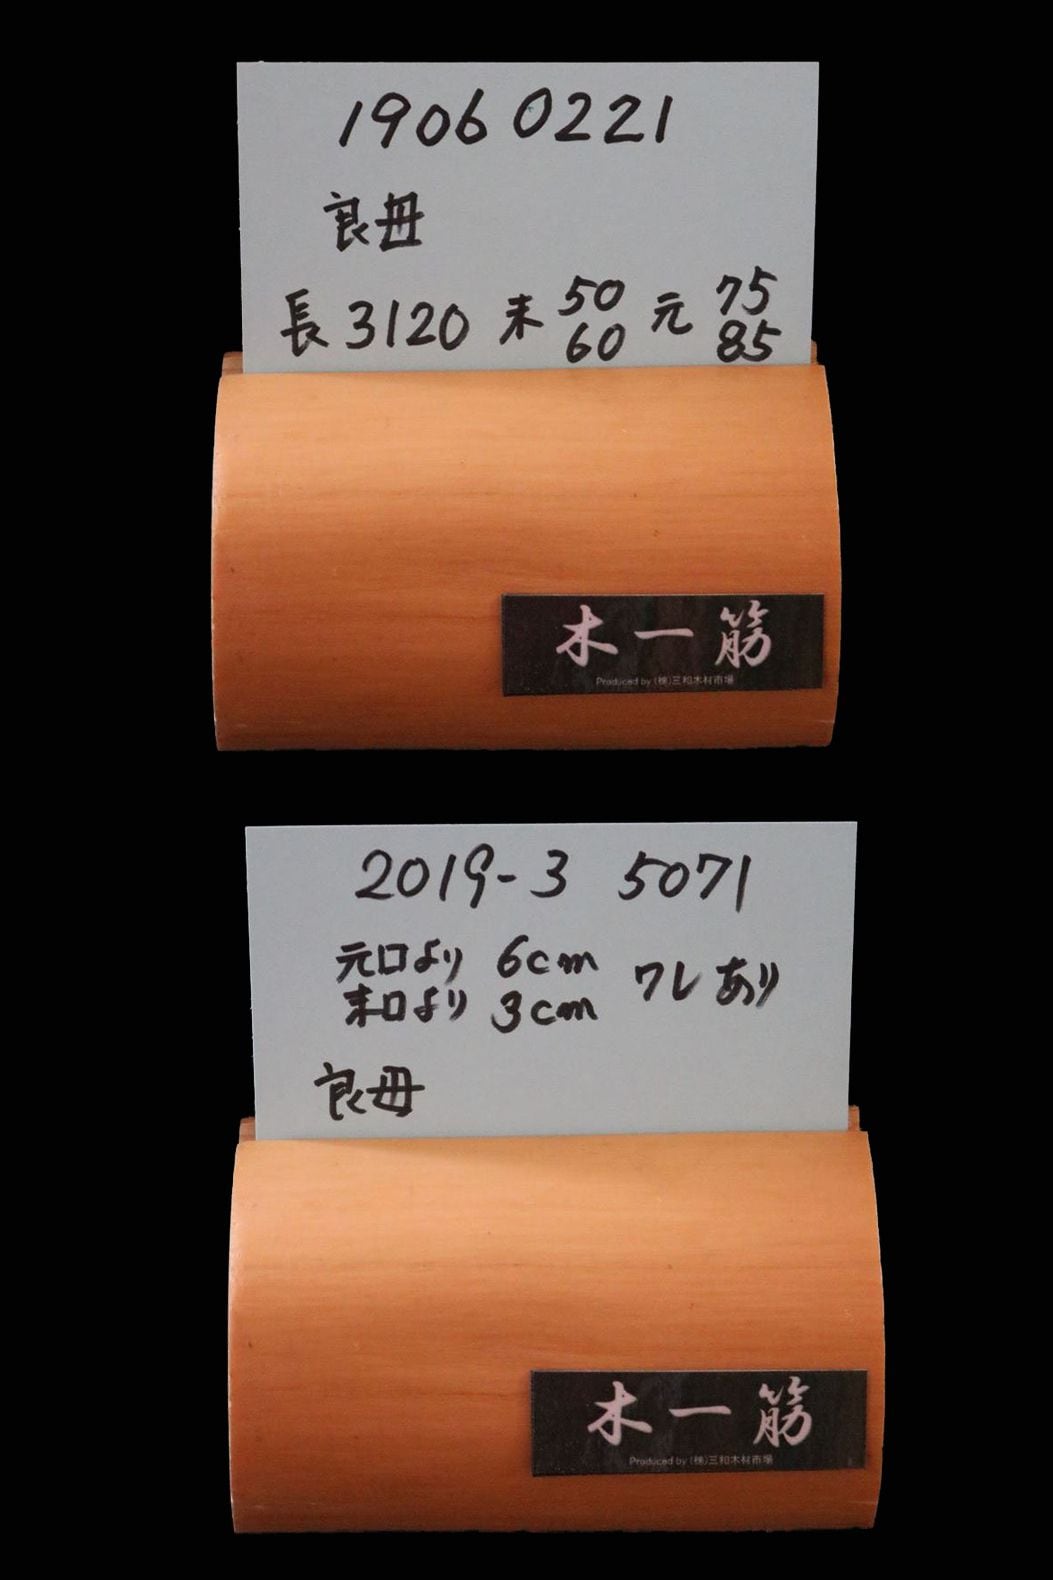 19060221
良母
長 3120 末 50 元 75
60 85
木一筋
Produced by (株)三和木材市場
2019-3 5071
元口より 6cm ワレあり
末口より 3cm
良母
木一筋
Produced by (株)三和木材市場